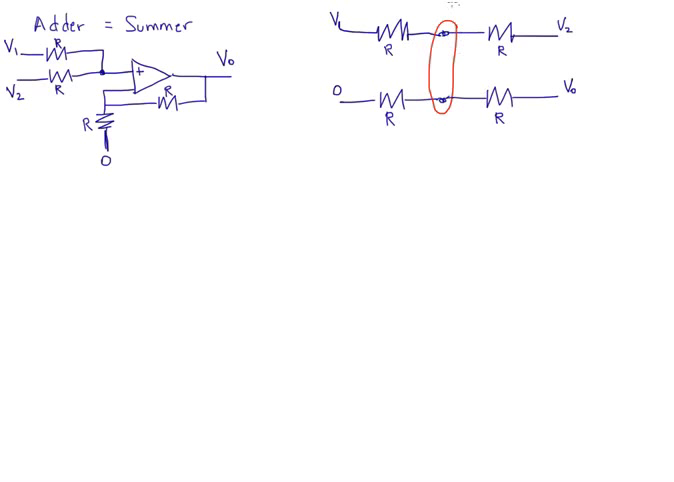 Adder = Summer
V1
R
V2
R
+
V0
R
R
0
V1
R
R
V2
0
R
R
V0